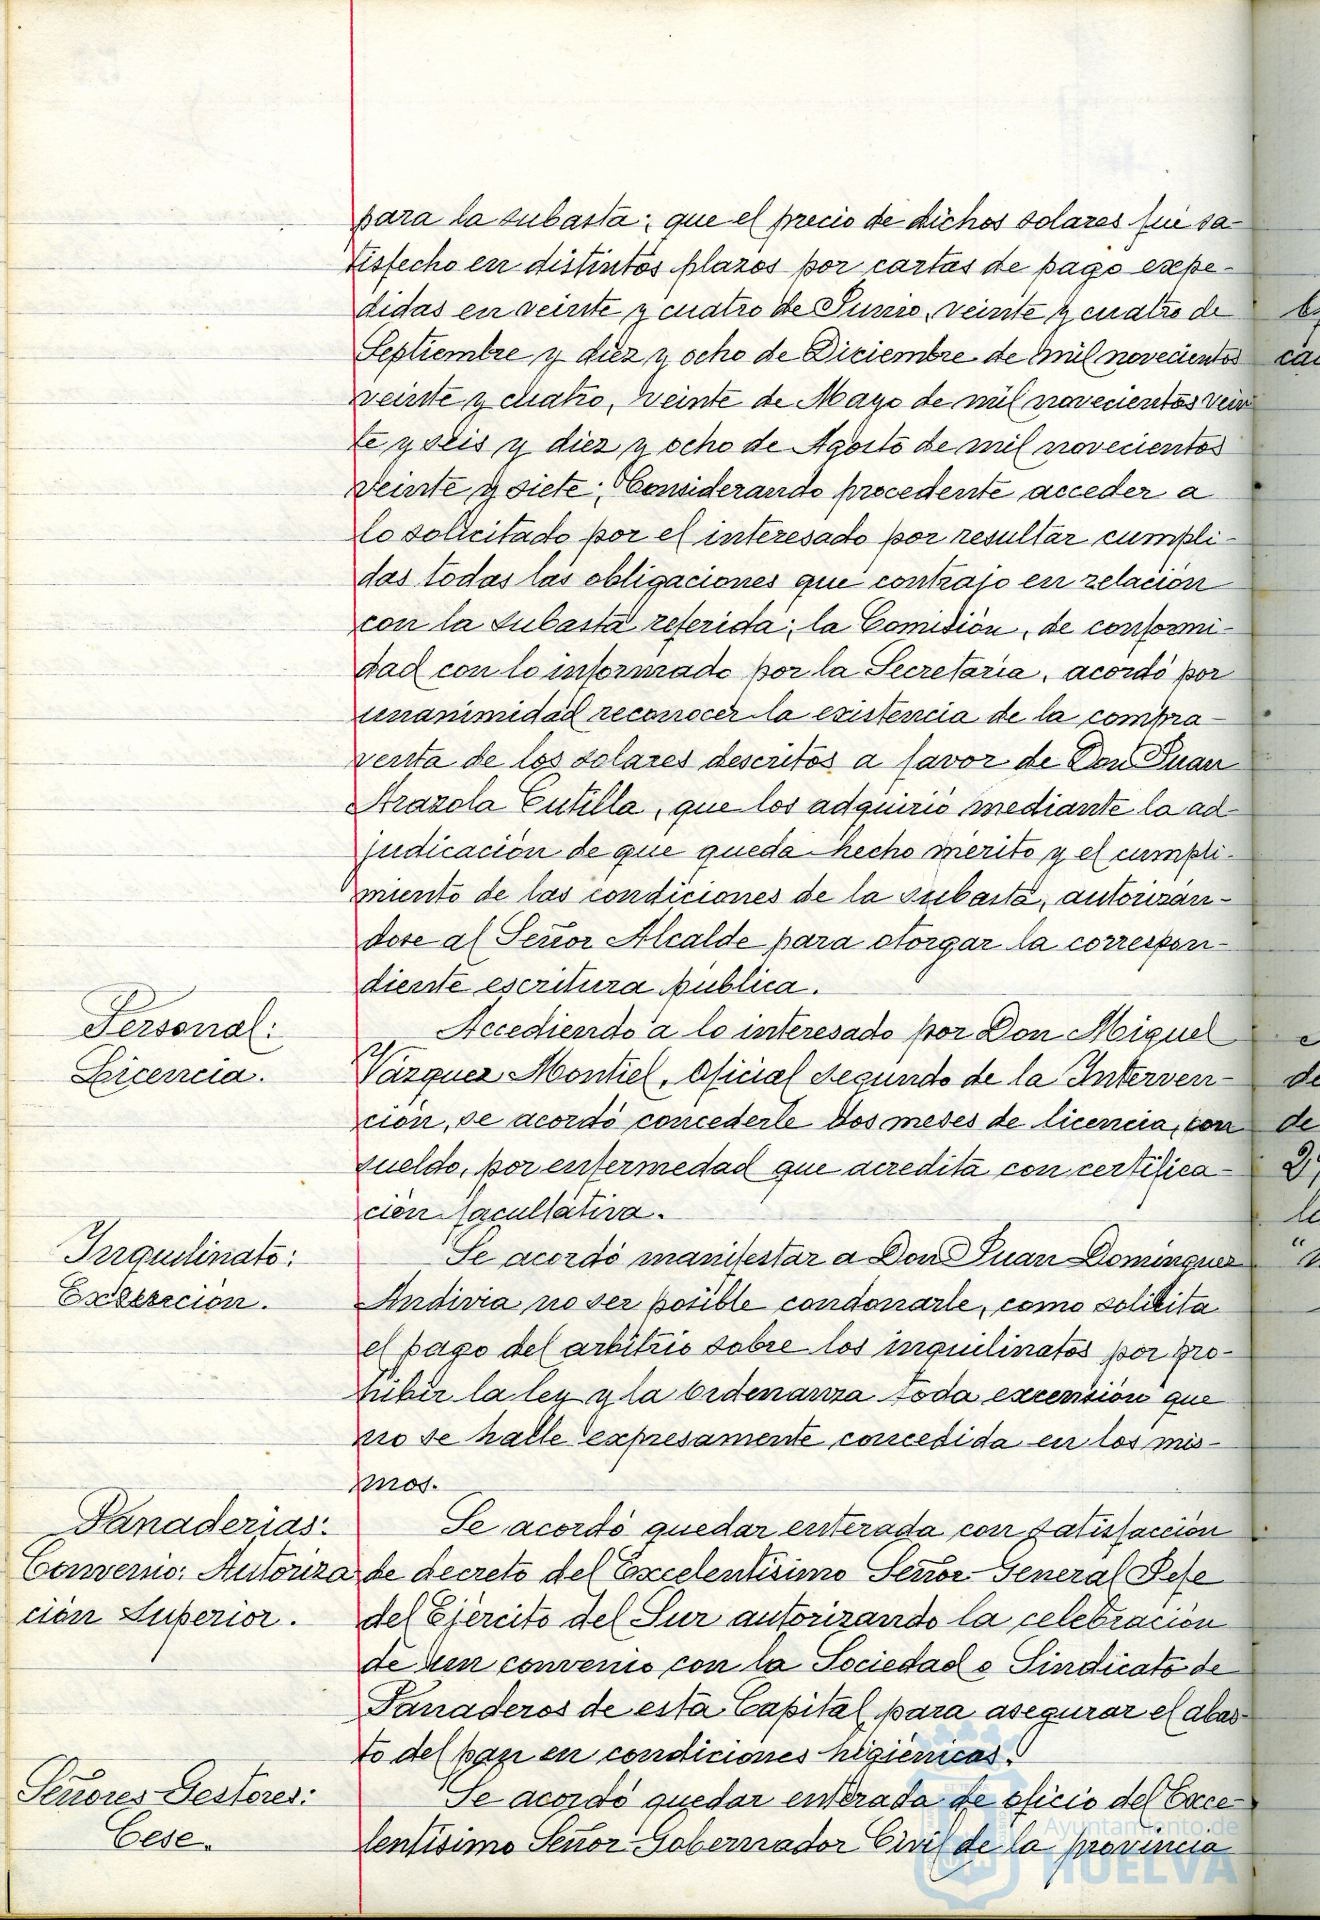 para la subasta; que el precio de dichos solares fué sa-
tisfecho en distintos plazos por cartas de pago expe-
didas en veinte y cuatro de Junio, veinte y cuatro de
Septiembre y diez y ocho de Diciembre de mil novecientos
veinte y cuatro, veinte de Mayo de mil novecientos vein
te y seis y diez y ocho de Agosto de mil novecientos
veinte y siete; Considerando procedente acceder a
lo solicitado por el interesado por resultar cumpli-
das todas las obligaciones que contrajo en relación
con la subasta referida; la Comisión, de conformi-
dad con lo informado por la Secretaría, acordó por
unanimidad reconocer la existencia de la compra-
venta de los solares descritos a favor de Don Juan
Arazola Cutilla, que los adquirió mediante la ad-
judicación de que queda hecho mérito y el cumpli-
miento de las condiciones de la subasta, autorizán-
dose al Señor Alcalde para otorgar la correspon-
diente escritura pública.
Personal:
Licencia.
Accediendo a lo interesado por Don Miguel
Vázquez Montiel, Oficial segundo de la Interven-
ción, se acordó concederle dos meses de licencia, con
sueldo, por enfermedad que acredita con certifica-
ción facultativa.
Inquilinato:
Exención.
Se acordó manifestar a Don Juan Domínguez
Andivia no ser posible condonarle, como solicita
el pago del arbitrio sobre los inquilinatos por pro-
hibir la ley y la Ordenanza toda excensión que
no se halle expresamente concedida en los mis-
mos.
Panaderías:
Convenio: Autoriza
ción Superior.
Se acordó quedar enterada con satisfacción
de decreto del Excelentísimo Señor General Jefe
del Ejército del Sur autorizando la celebración
de un convenio con la Sociedad o Sindicato de
Panaderos de esta Capital, para asegurar el abas-
to del pan en condiciones higiénicas.
Señores Gestores:
Cese.
Se acordó quedar enterada de oficio del Exce-
lentísimo Señor Gobernador Civil de la provincia
Ayuntamiento de
HUELVA